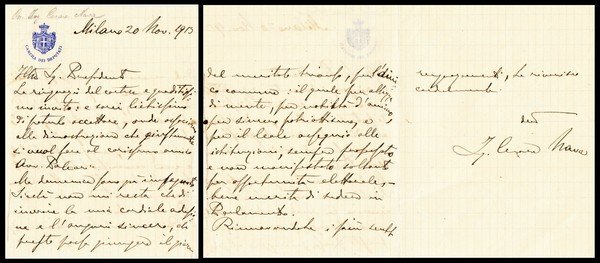 On. Ing. Cesare Nava
Milano 20 Nov. 1913
CAMERA DEI DEPUTATI
Ill.mo Sig. Presidente
La ringrazio del cortese e gradito
suo invito: e sarei lietissimo
di poterlo accettare, onde
alla dimostrazione che giustamente
si vuol fare al carissimo amico
Avv.
Ma domenica sono già impegnato
Sicchè non mi resta che di
inviare la mia cordiale adesione
e l'augurio sincero, che
presto possa giungere il giorno
del meritato trionfo, per l'amico
comune: il quale per altezza
di mente, per nobiltà d'animo,
per sincero patriottismo, e
per il leale ossequio alle
istituzioni, sempre professato
e non manifestato soltanto
per opportunità elettorale,
bene merita di sedere in
Parlamento.
Rinnovandole i più
ringraziamenti, La riverisco
cordialmente
Ing. Cesare Nava